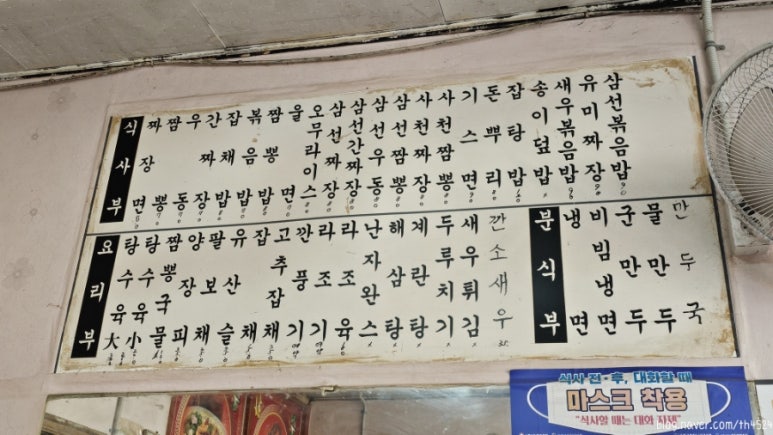 식사부
짜장면
짬뽕
우동
간짜장
잡채밥
볶음밥
짬뽕밥
울면
오무라이스
삼선짜장
삼선간짜장
삼선우동
삼선짬뽕
사천짜장
사천짬뽕
기스면
돈뿌리
잡탕밥
송이덮밥
새우볶음밥
유미짜장
삼선볶음밥
요리부
탕수육大
탕수육小
짬뽕국물
양장피
팔보채
유산슬
잡채
고추잡채
깐풍기
라조기
라조육
난자완스
해삼탕
계란탕
두루치기
새우튀김
깐소새우
분식부
냉면
비빔냉면
군만두
물만두
만두국
식사 전·후, 대화할 때
마스크 착용
"식사할 때는 대화 자제"
blog.naver.com/th4524